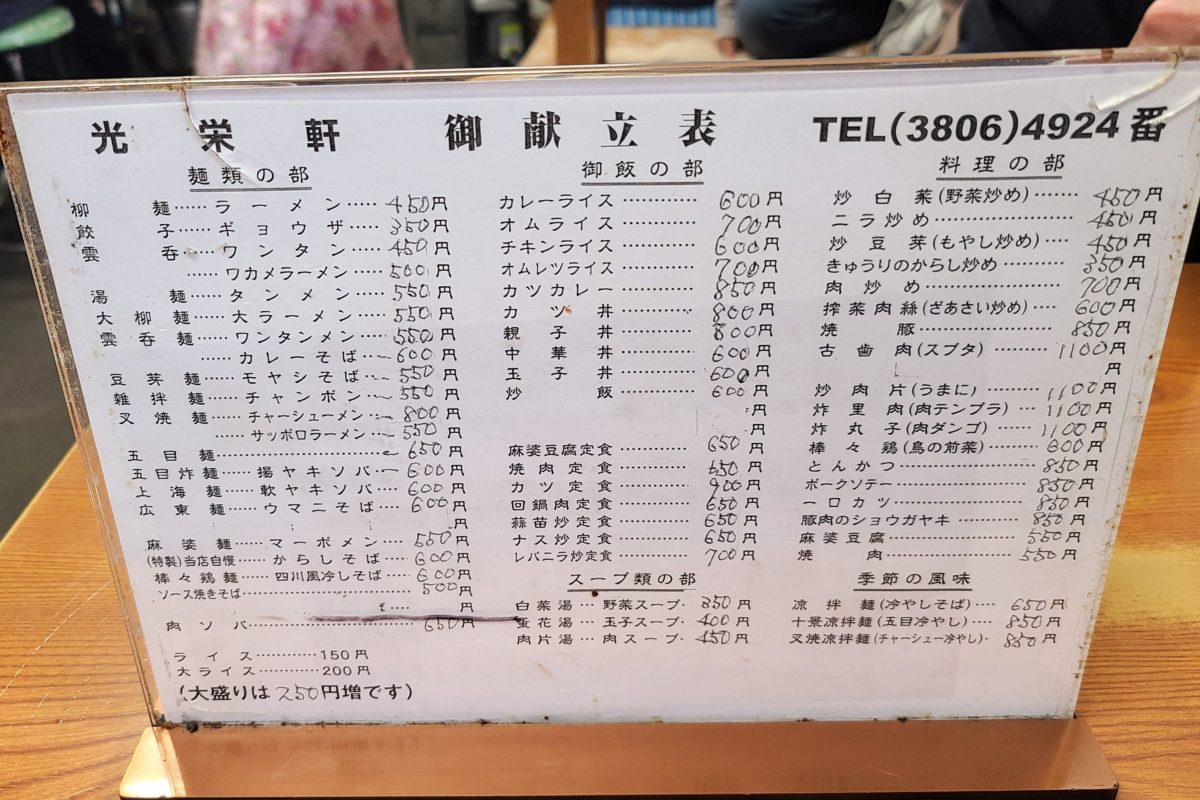 光栄軒 御献立表 TEL(3806)4924番
麺類の部
柳麺……ラーメン……450円
餃子……ギョウザ……350円
雲呑……ワンタン……450円
……ワカメラーメン……500円
湯麺……タンメン……550円
大柳麺……大ラーメン……550円
雲呑麺……ワンタンメン……550円
……カレーそば……600円
豆芽麺……モヤシそば……550円
雑拌麺……チャンポン……550円
叉焼麺……チャーシューメン……800円
……サッポロラーメン……550円
五目麺……650円
五目炸麺……揚ヤキソバ……600円
上海麺……軟ヤキソバ……600円
広東麺……ウマニそば……600円
円
麻婆麺……マーボメン……550円
(特製)当店自慢……からしそば……600円
棒々鶏麺……四川風冷しそば……600円
ソース焼きそば……500円
円
肉ソバ……650円
ライス……150円
大ライス……200円
(大盛りは250円増です)
御飯の部
カレーライス……600円
オムライス……700円
チキンライス……600円
オムレツライス……700円
カツカレー……850円
カツ丼……800円
親子丼……800円
中華丼……600円
玉子丼……600円
炒飯……600円
円
円
麻婆豆腐定食……650円
焼肉定食……650円
カツ定食……900円
回鍋肉定食……650円
蒜苗炒定食……650円
ナス炒定食……650円
レバニラ炒定食……700円
スープ類の部
白菜湯…野菜スープ・350円
蛋花湯…玉子スープ・400円
肉片湯…肉スープ・450円
料理の部
炒白菜(野菜炒め)……450円
ニラ炒め……450円
炒豆芽(もやし炒め)……450円
きゅうりのからし炒め……350円
肉炒め……700円
搾菜肉絲(ざあさい炒め)……600円
焼豚……850円
古歯肉(スブタ)……1100円
円
炒肉片(うまに)……1100円
炸里肉(肉テンプラ)…1100円
炸丸子(肉ダンゴ)……1100円
棒々鶏(鳥の前菜)……600円
とんかつ……850円
ポークソテー……850円
一口カツ……850円
豚肉のショウガヤキ……850円
麻婆豆腐……550円
焼肉……550円
季節の風味
凉拌麺(冷やしそば)……650円
十景凉拌麺(五目冷やし)……850円
叉焼凉拌麺(チャーシュー冷やし)・850円